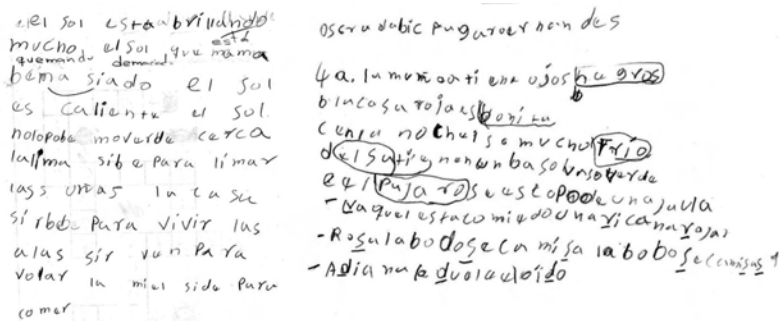 el sol esta brillando
mucho el sol que está
quemando demand. mama
bema siado el sol
es caliente el sol
nolopobe moverde cerca
lalima sibe para limar
lass uñas la casa
sirbe para vivir las
alas sir ven para
volar la miel side para
comer
oscradabic pugaroernandes
4a. la mum oati ene ojos negros
b la casa roja es bonita
c en la noche iso mucho frio
d el satienen un baso baso verde
e el pajaro se estopode una jaula
- raquel esta comiedo una rica naraja
- Rosa labo dose camisa labo bose camisas
- A diana le duole el oido